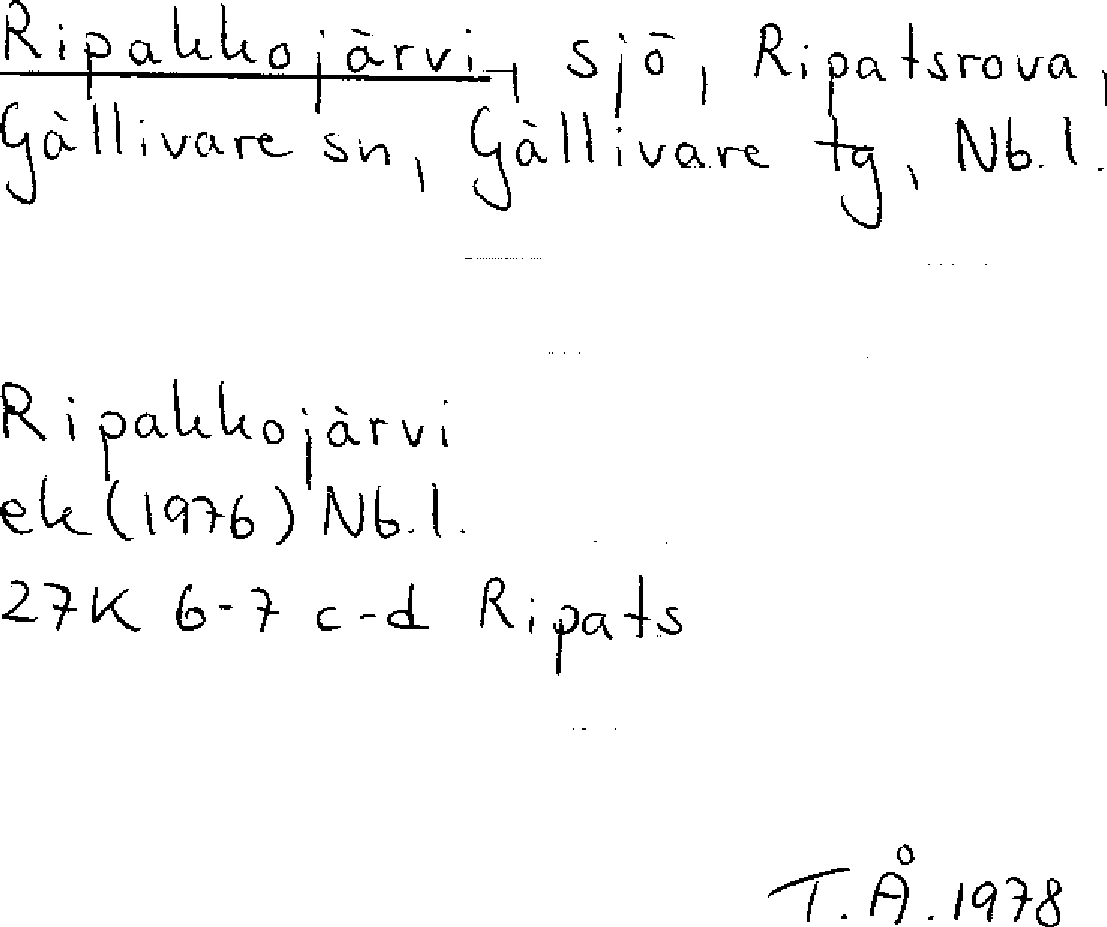 Ripakkojärvi, sjö, Ripatsrova,
Gällivare sn, Gällivare tg, Nb.l.
Ripakkojärvi
ek (1976) Nb.l.
27K 6-7 c-d Ripats
T.Å. 1978